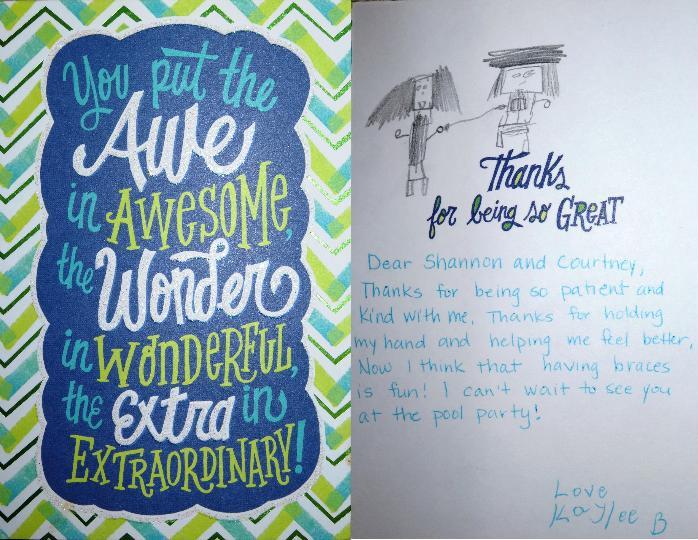 You put the
Awe
in AWESOME,
the Wonder
in WONDERFUL,
the Extra in
EXTRAORDINARY!
Thanks
for being so GREAT
Dear Shannon and Courtney,
Thanks for being so patient and
kind with me. Thanks for holding
my hand and helping me feel better.
Now I think that having braces
is fun! I can't wait to see you
at the pool party!
Love
Kaylee B